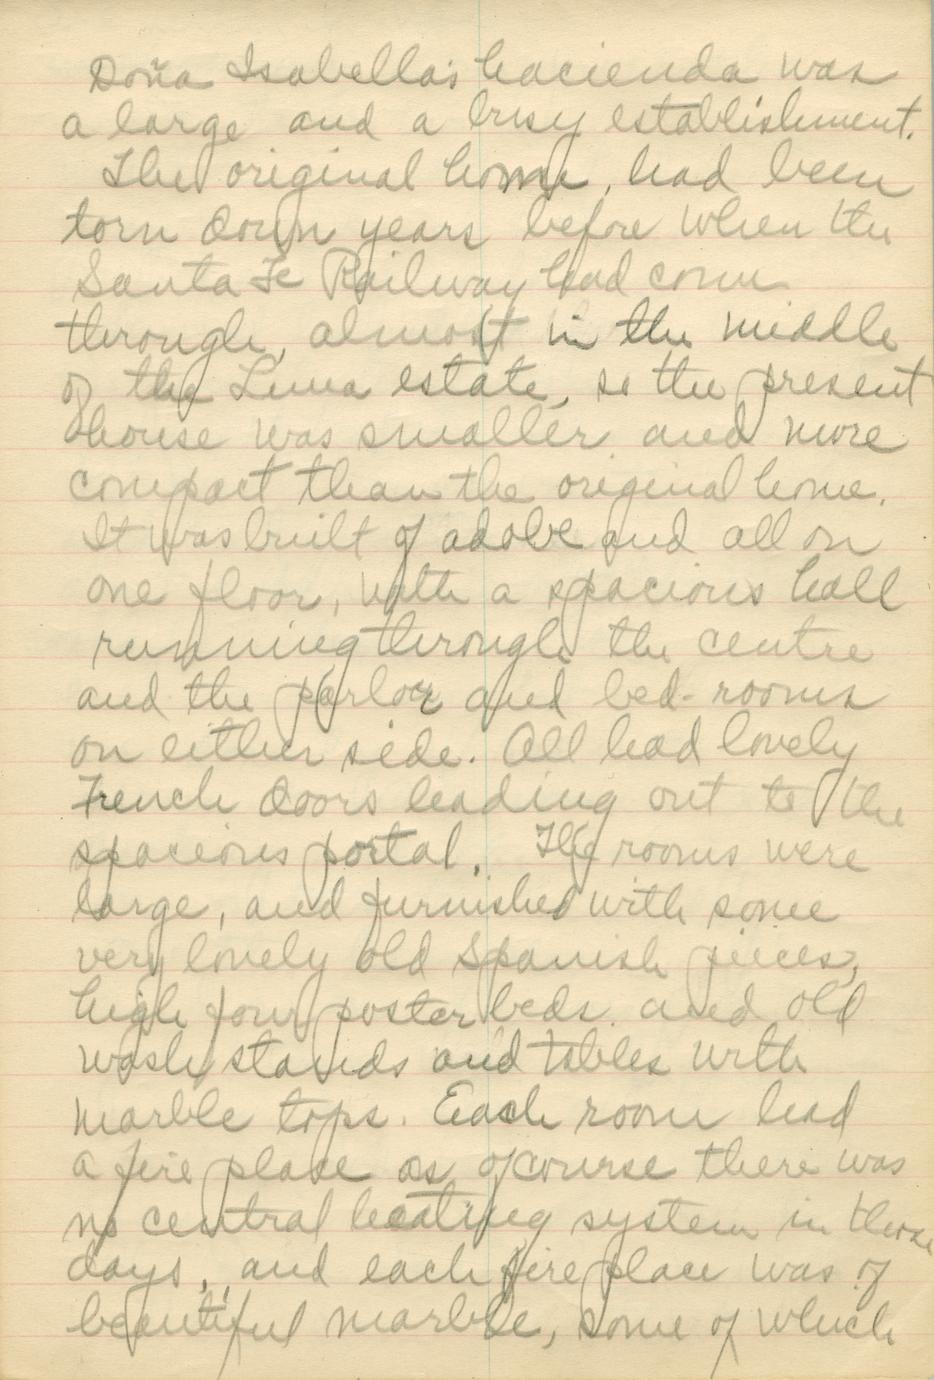 Doña Isabella's hacienda was
a large and a busy establishment.
The original home, had been
torn down years before when the
Santa Fe Railway had come
through, almost in the middle
of the Luna estate, so the present
house was smaller and more
compact than the original home.
It was built of adobe and all on
one floor, with a spacious hall
running through the centre
and the parlor and bed-rooms
on either side. All had lovely
French doors leading out to the
spacious portal. The rooms were
large, and furnished with some
very lovely old Spanish pieces,
high four poster beds and old
wash stands and tables with
marble tops. Each room had
a fire place as of course there was
no central heating system in those
days, and each fire place was of
beautiful marble, some of which